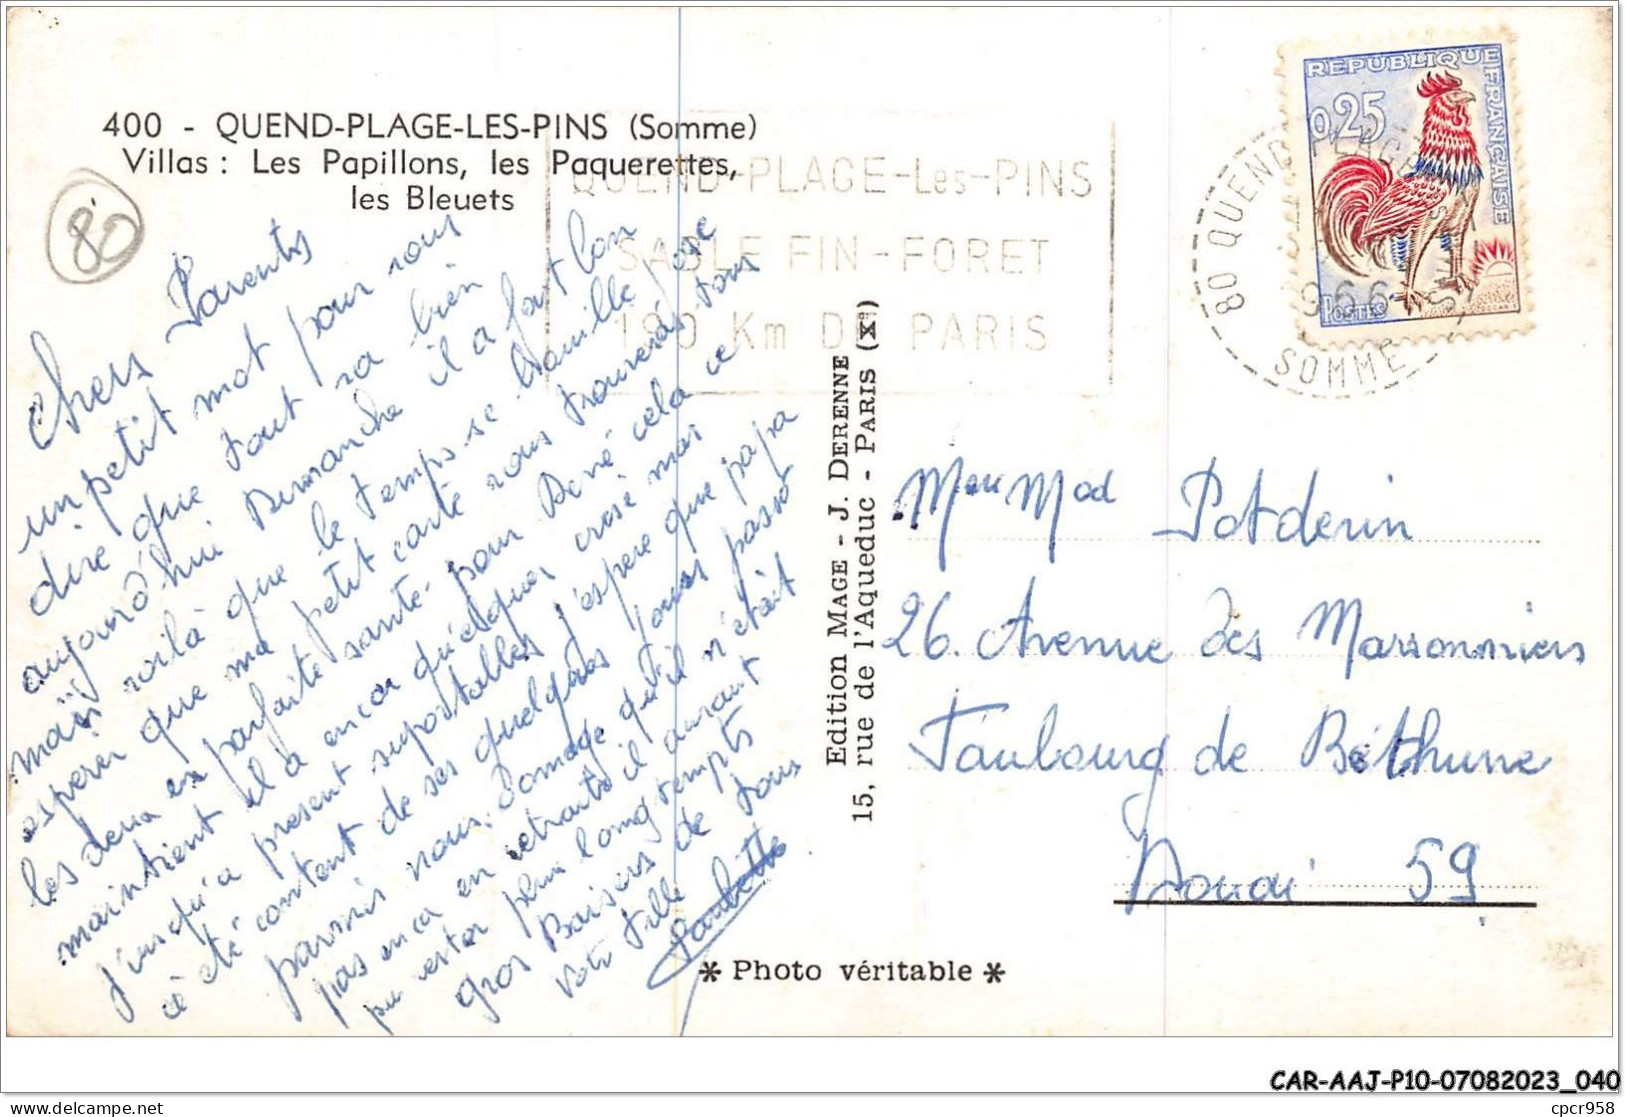 400 - QUEND-PLAGE-LES-PINS (Somme)
Villas : Les Papillons, les Paquerettes,
les Bleuets
80
QUEND-PLAGE-Les-PINS
SABLE FIN-FORET
180 Km DE PARIS
80 QUEND PLAGE
1966
SOMME
REPUBLIQUE FRANÇAISE
0,25
POSTES
Chers Parents
un petit mot pour vous
dire que tout va bien
aujourd'hui Dimanche il a fait bon
mais voilà que le temps se brouille j'ose
esperer que ma petit carte vous trouveras tous
les deux en parfaite santé. pour René cela ce
maintient il a encor quelques crise mai
jusqu'a present suportables j'espere que papa
a été content de ses quelques jours passé
parmis nous. Domage qu'il n'était
pas encor en retraite il auraut
pu rester plus longtempts
gros Baisers de tous
votre fille
Paulette
Edition MAGE - J. DERENNE
15, rue de l'Aqueduc - PARIS (Xe)
Mr eu Mad Potderin
26. Avenue des Marronniers
Faubourg de Béthune
Douai 59
* Photo véritable *
CAR-AAJ-P10-07082023_040
delcampe.net
cpcr958